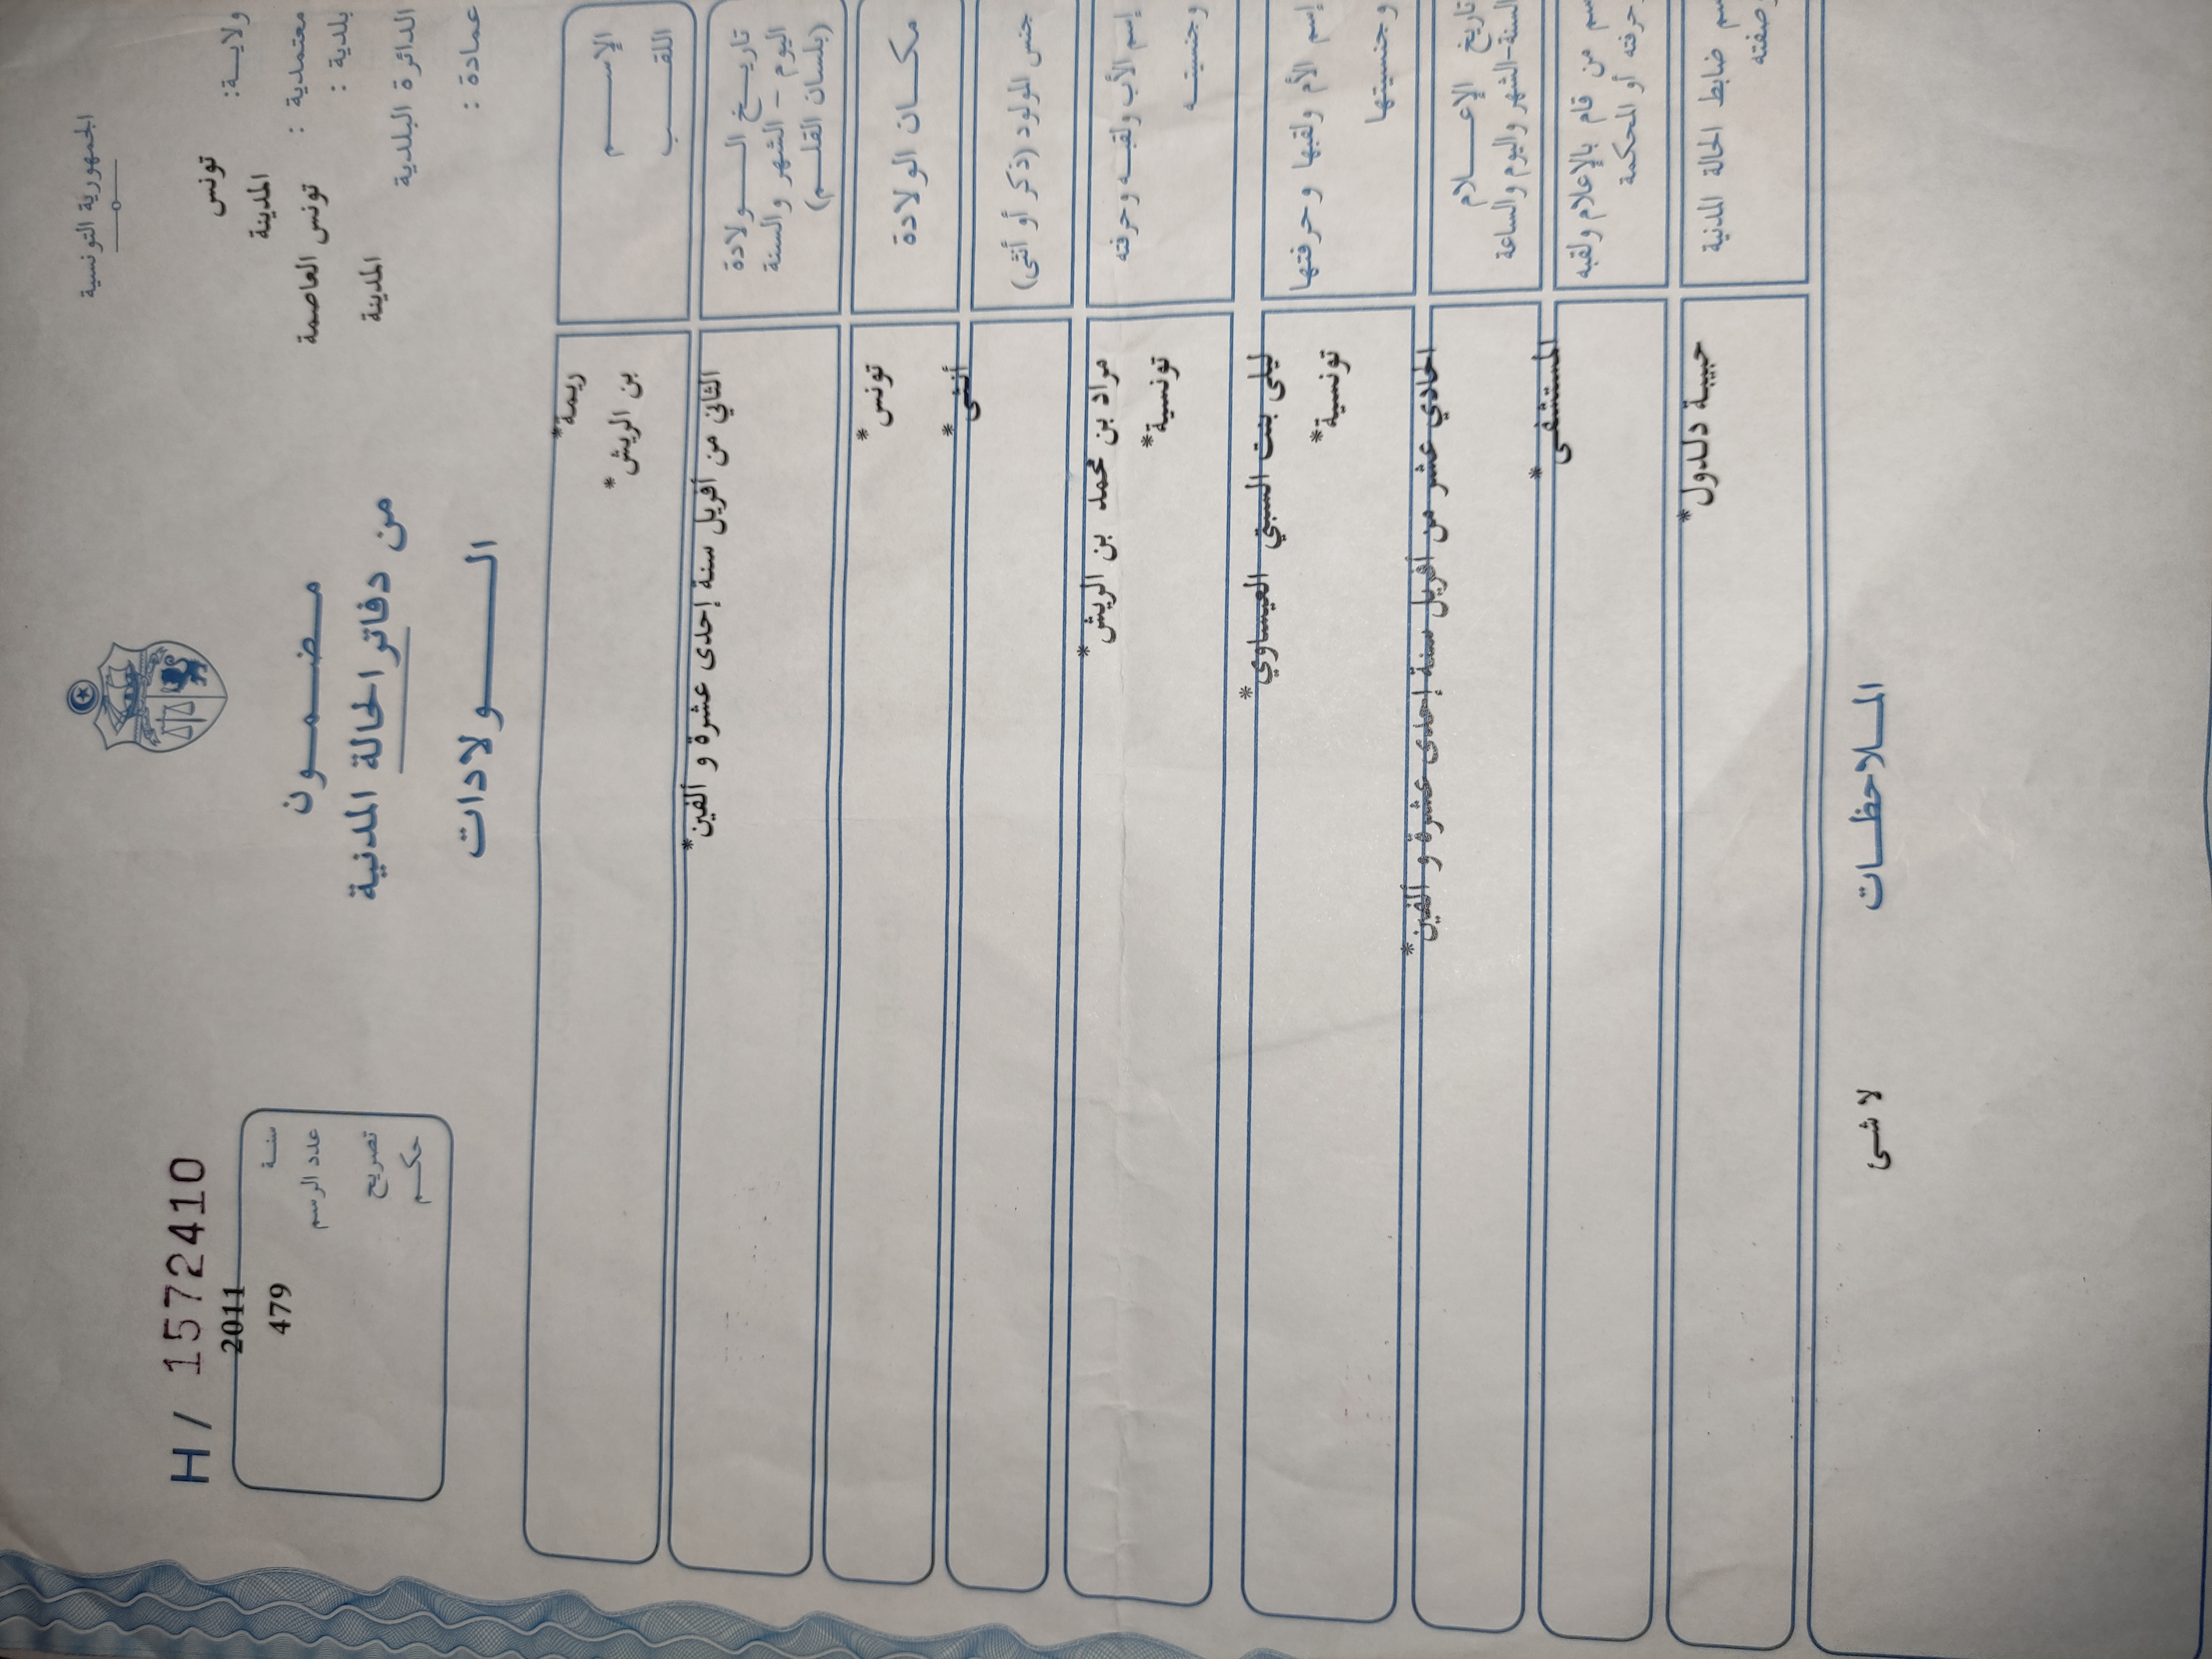 الجمهورية التونسية
ولايـــة: تونس
معتمدية : المدينة
بلدية : تونس العاصمة
الدائرة البلدية المدينة
عمادة :
مـــضـــمـــون
من دفاتر الحالة المدنية
الـــــولادات
H / 1572410
سنـة 2011
عدد الرسم 479
تصريح
حكـم
الإســــم ريمة*
اللقـــب بن الريش*
تاريــخ الـــولادة
اليوم – الشهر و السنة
(بلسان القلـــم)
الثاني من أفريل سنة إحدى عشرة و ألفين*
مكـــان الولادة تونس*
جنس المولود (ذكر أو أنثى) أنثى*
إسم الأب ولقبـــه وحرفته
وجنسيتـــه
مراد بن محمد بن الريش*
تونسية*
إسم الأم ولقبها و حرفتها
و جنسيتها
ليلى بنت السبتي العيساوي*
تونسية*
تاريخ الإعـــلام
السنة-الشهر واليوم والساعة
الحادي عشر من أفريل سنة إحدى عشرة و ألفين*
من قام بالإعلام ولقبه
حرفته أو المحكمة
المستشفى*
ضابط الحالة المدنية
وصفته
حبيبة دلدول*
المـــلاحظـــات
لا شئ